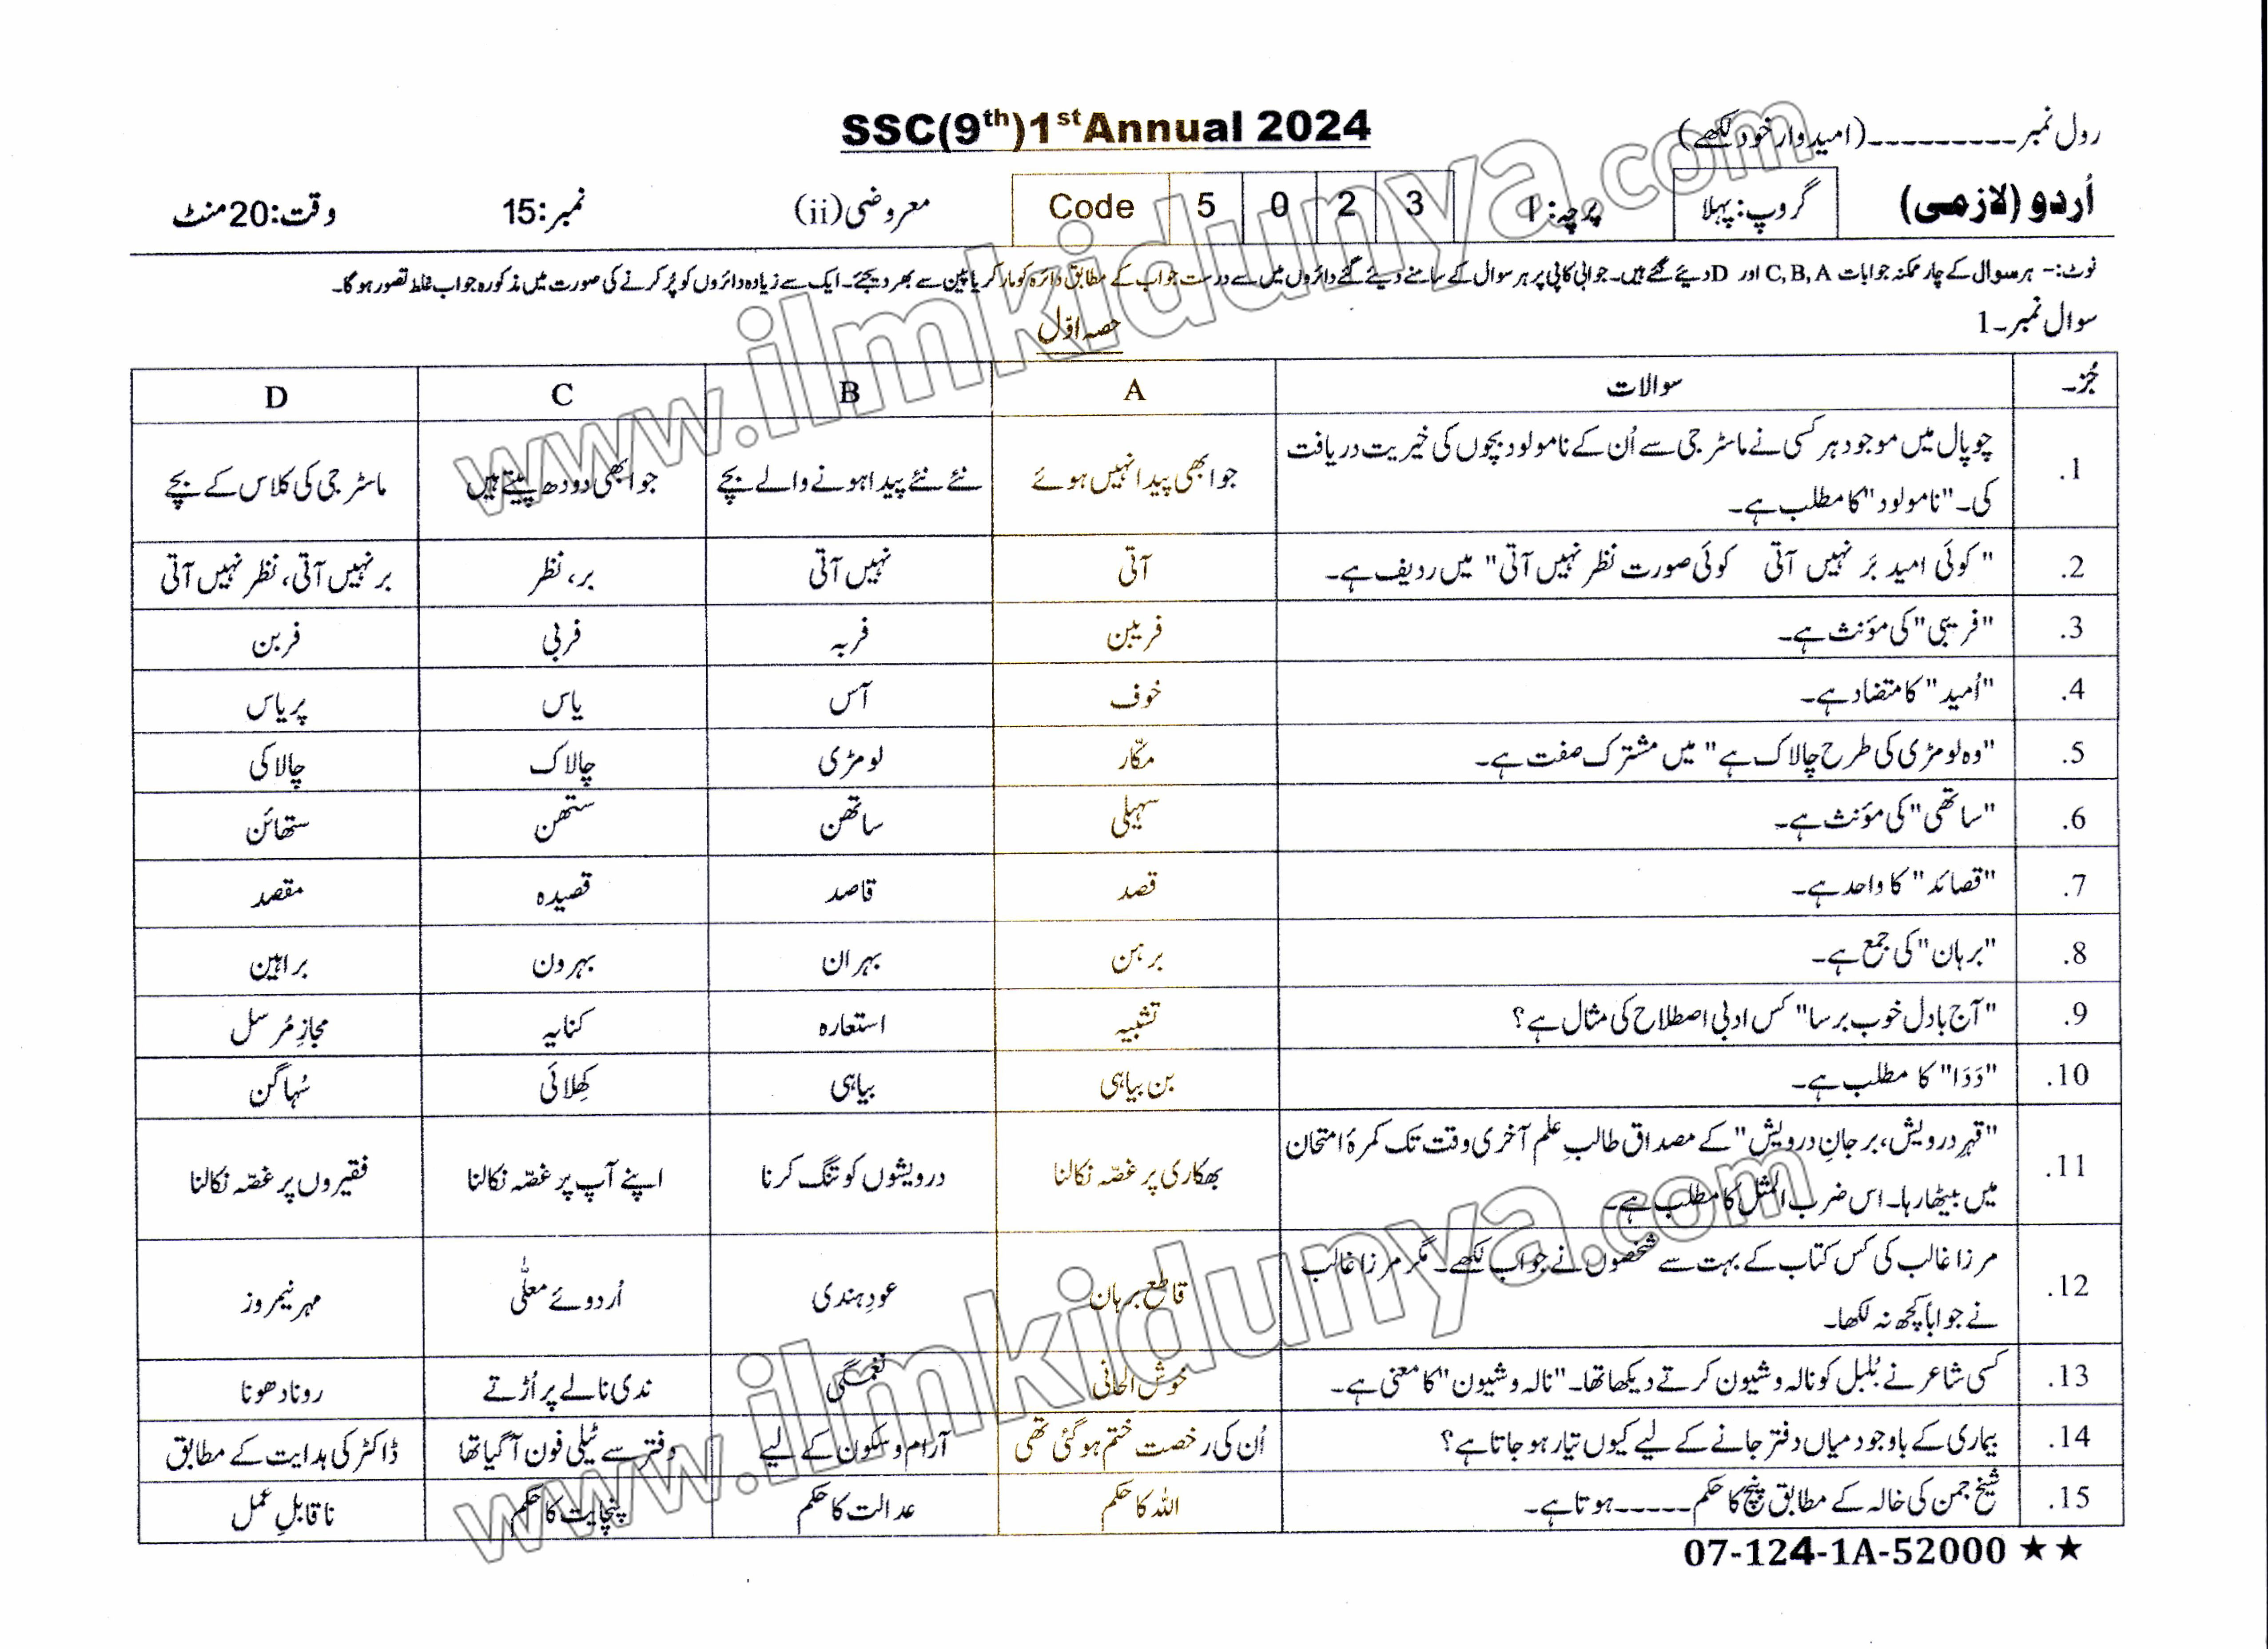 SSC(9th)1st Annual 2024
رول نمبر ---------(امیدوار خود لکھے)
اُردو (لازمی) گروپ: پہلا پرچہ: I Code 5 0 2 3 معروضی (ii) نمبر: 15 وقت: 20 منٹ
نوٹ:- ہر سوال کے چار ممکنہ جوابات C, B, A اور D دیئے گئے ہیں۔ جوابی کاپی پر ہر سوال کے سامنے دیئے گئے دائروں میں سے درست جواب کے مطابق دائرہ کو مارکر یا پین سے بھر دیجئے۔ ایک سے زیادہ دائروں کو پُر کرنے کی صورت میں مذکورہ جواب غلط تصور ہو گا۔
سوال نمبر۔1
حصہ اوّل
جُز۔ سوالات A B C D
1. چوپال میں موجود ہر کسی نے ماسٹر جی سے اُن کے نامولود بچوں کی خیریت دریافت
کی۔ "نامولود" کا مطلب ہے۔ جو ابھی پیدا نہیں ہوئے نئے نئے پیدا ہونے والے بچے جو ابھی دودھ پیتے ہیں ماسٹر جی کی کلاس کے بچے
2. "کوئی امید بَر نہیں آتی کوئی صورت نظر نہیں آتی" میں ردیف ہے۔ آتی نہیں آتی بر، نظر بر نہیں آتی، نظر نہیں آتی
3. "فریبی" کی مؤنث ہے۔ فریبن فربہ فربی فربن
4. "اُمید" کا متضاد ہے۔ خوف آس یاس پریاس
5. "وہ لومڑی کی طرح چالاک ہے" میں مشترک صفت ہے۔ مکّار لومڑی چالاک چالاکی
6. "ساتھی" کی مؤنث ہے۔ سہیلی ساتھن ستھن ستھائن
7. "قصائد" کا واحد ہے۔ قصد قاصد قصیدہ مقصد
8. "برہان" کی جمع ہے۔ برہن بہران بہرون براہین
9. "آج بادل خوب برسا" کس ادبی اصطلاح کی مثال ہے؟ تشبیہ استعارہ کنایہ مجازِ مُرسل
10. "دَدَا" کا مطلب ہے۔ بن بیاہی بیاہی کِھلائی سُہاگن
11. "قہرِ درویش، بر جانِ درویش" کے مصداق طالبِ علم آخری وقت تک کمرۂ امتحان
میں بیٹھا رہا۔ اس ضرب المثل کا مطلب ہے۔ بھکاری پر غصّہ نکالنا درویشوں کو تنگ کرنا اپنے آپ پر غصّہ نکالنا فقیروں پر غصّہ نکالنا
12. مرزا غالب کی کس کتاب کے بہت سے شخصوں نے جواب لکھے۔ مگر مرزا غالب
نے جواباً کچھ نہ لکھا۔ قاطع برہان عودِ ہندی اُردوئے معلّٰی مہر نیمروز
13. کسی شاعر نے بُلبل کو نالہ و شیون کرتے دیکھا تھا۔ "نالہ و شیون" کا معنی ہے۔ خوش الحانی نغمگی ندی نالے پر اُڑتے رونا دھونا
14. بیماری کے باوجود میاں دفتر جانے کے لیے کیوں تیار ہو جاتا ہے؟ اُن کی رخصت ختم ہو گئی تھی آرام و سکون کے لیے دفتر سے ٹیلی فون آ گیا تھا ڈاکٹر کی ہدایت کے مطابق
15. شیخ جمن کی خالہ کے مطابق پنچ کا حکم -----ہوتا ہے۔ اللہ کا حکم عدالت کا حکم پنچایت کا حکم ناقابلِ عمل
07-124-1A-52000 ★★
www.ilmkidunya.com
www.ilmkidunya.com